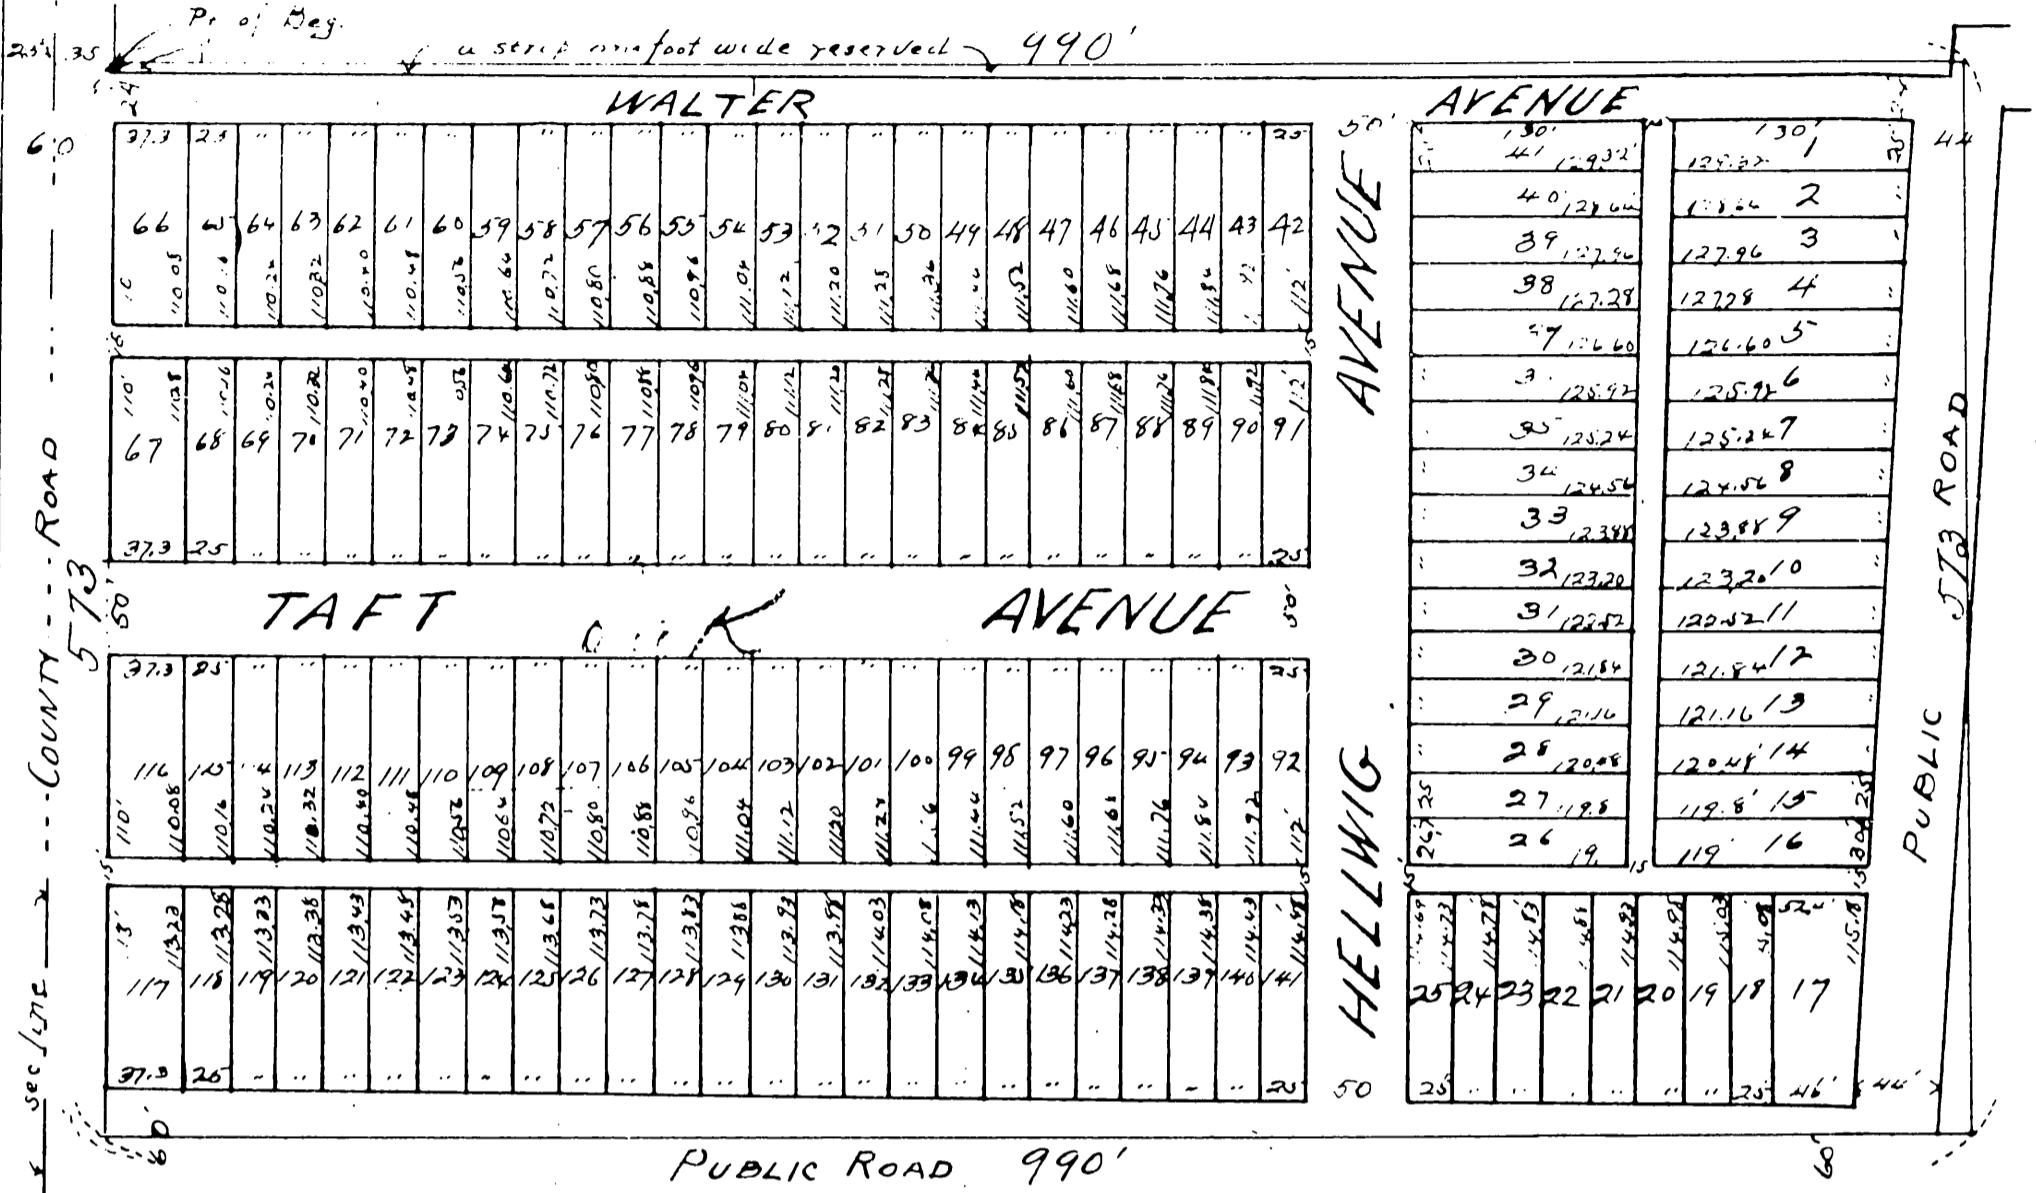 Pt of Beg.
25' 35
a strip one foot wide reserved 990'
24
WALTER AVENUE
60
37.3 25 " " " " " " " " " " " " " " " " " " " " " " 25
50'
130' 130'
44
66 65 64 63 62 61 60 59 58 57 56 55 54 53 52 51 50 49 48 47 46 45 44 43 42
110.05 110.16 110.24 110.32 110.40 110.48 110.56 110.64 110.72 110.80 110.88 110.96 111.04 111.12 111.20 111.28 111.36 111.44 111.52 111.60 111.68 111.76 111.84 112'
15
110' 110.16 110.24 110.32 110.40 110.48 110.64 110.72 110.80 110.88 110.96 111.04 111.12 111.20 111.28 111.44 111.52 111.60 111.68 111.76 111.84 111.92 112'
67 68 69 70 71 72 73 74 75 76 77 78 79 80 81 82 83 84 85 86 87 88 89 90 91
37.3 25 " " " " " " " " " " " " " " " " " " " " " " 25
50' TAFT AVENUE 50'
K
37.3 25 " " " " " " " " " " " " " " " " " " " " " " 25
116 115 114 113 112 111 110 109 108 107 106 105 104 103 102 101 100 99 98 97 96 95 94 93 92
110' 110.08 110.16 110.24 110.32 110.40 110.48 110.56 110.64 110.72 110.80 110.88 110.96 111.04 111.12 111.20 111.28 111.44 111.52 111.60 111.68 111.76 111.84 111.92 112'
15' 15'
113.23 113.28 113.33 113.38 113.43 113.48 113.53 113.58 113.68 113.73 113.78 113.83 113.88 113.93 113.98 114.03 114.08 114.13 114.18 114.23 114.28 114.33 114.38 114.43 114.48
117 118 119 120 121 122 123 124 125 126 127 128 129 130 131 132 133 134 135 136 137 138 139 140 141
37.3 25 " " " " " " " " " " " " " " " " " " " " " " 25
50
HELLWIG AVENUE
41 129.32' 129.32 1 25
40 128.64 128.64 2
39 127.96 127.96 3
38 127.28 127.28 4
126.60 126.60 5
125.92 125.92 6
35 125.24 125.24 7
34 124.56 124.56 8
33 123.88 123.88 9
32 123.20 123.20 10
31 122.52 122.52 11
30 121.84 121.84 12
29 121.16 121.16 13
28 120.48 120.48' 14
25 27 119.8 119.8' 15 25
26.7 26 119' 16
15' 15 15
114.73 114.78 114.83 114.88 114.93 114.98 115.03 115.18
25 24 23 22 21 20 19 18 17
25 " " " " " " 25 46' 44'
PUBLIC ROAD
573
COUNTY ROAD
573
sec line
60'
PUBLIC ROAD 990'
60